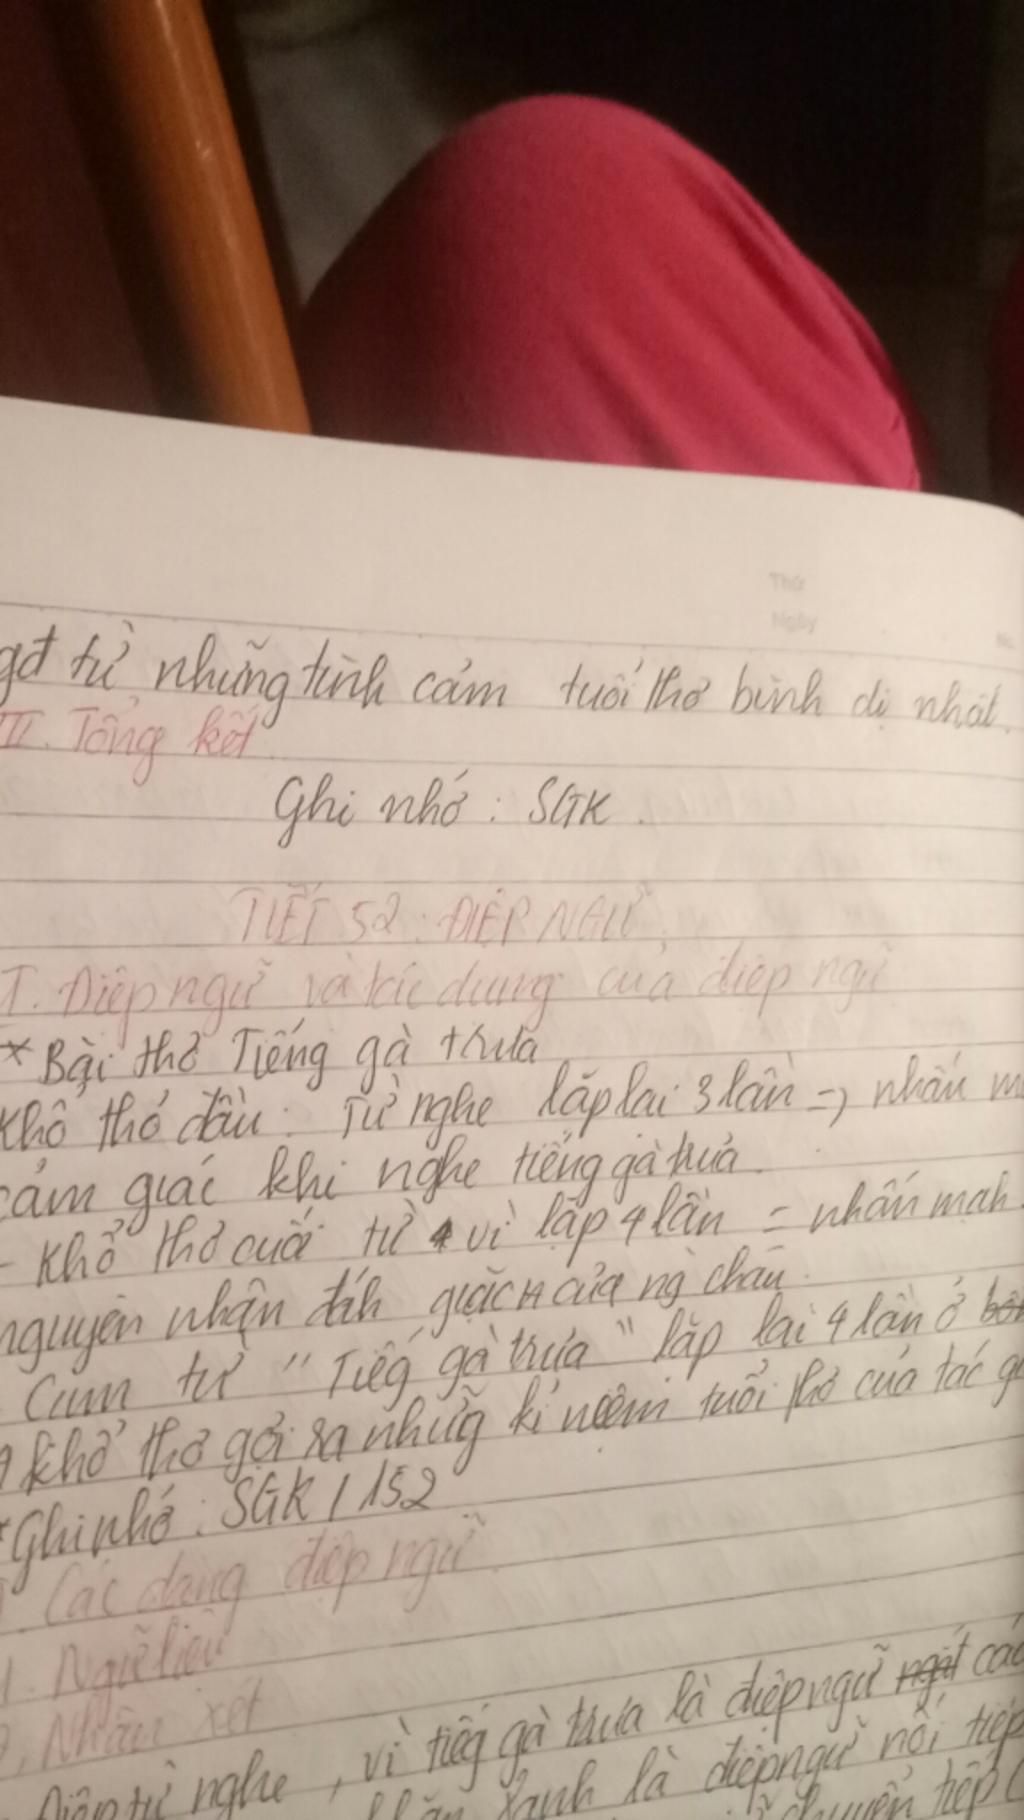 Thứ
Ngày
No.
gđ từ những tình cảm tuổi thơ bình dị nhất.
III. Tổng kết
Ghi nhớ : SGK.
TIẾT 52 : ĐIỆP NGỮ
I. Điệp ngữ và tác dụng của điệp ngữ
* Bài thơ Tiếng gà trưa
Khổ thơ đầu : Từ nghe lặp lại 3 lần => nhấn m
cảm giác khi nghe tiếng gà trưa.
- Khổ thơ cuối từ vì lặp 4 lần = nhấn mạnh
nguyên nhân của ng cháu.
Cụm từ "Tiếg gà trưa" lặp lại 4 lần ở
4 khổ thơ gợi ra nhữg kỉ niệm tuổi thơ của tác g
* Ghi nhớ : SGK / 152
Các dạng điệp ngữ
1. Ngữ liệu
2. Nhận xét
Điệp từ nghe, vì tiếg gà trưa là điệp ngữ các
xanh là điệp ngữ nối tiếp
chuyển tiếp (